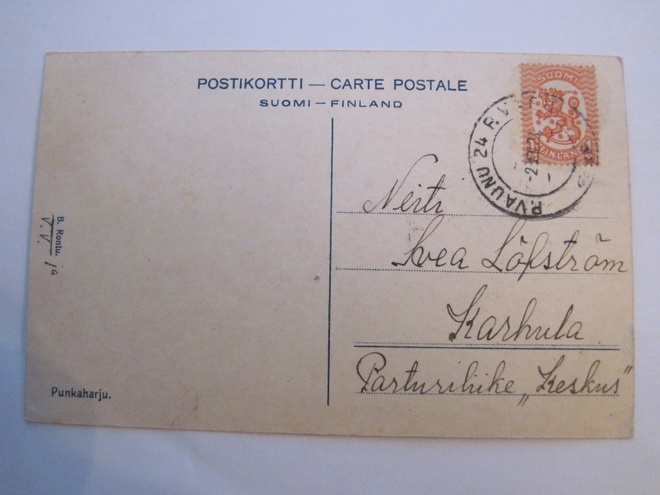 POSTIKORTTI — CARTE POSTALE
SUOMI — FINLAND
SUOMI
FINLAND
P.VAUNU 24
Neiti
Svea Löfström
Karhula
Parturiliike „Keskus"
B. Rontu.
V.V. ja
Punkaharju.